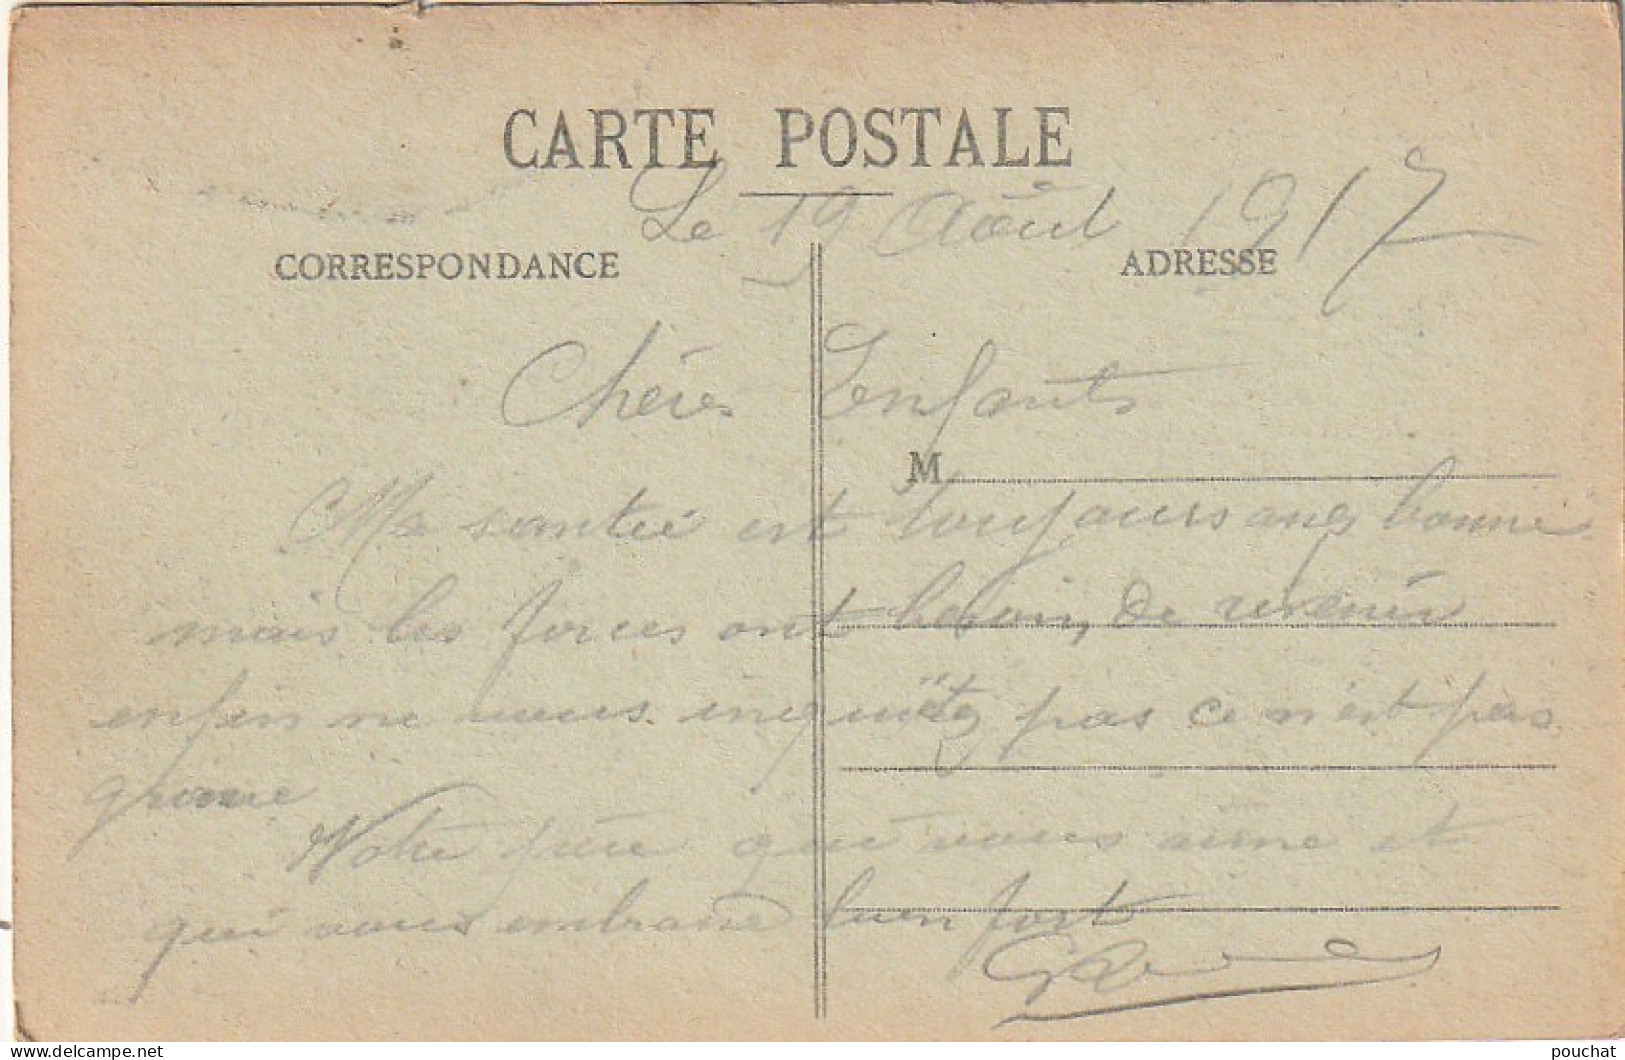 CARTE POSTALE
Le 19 Août 1917
CORRESPONDANCE
ADRESSE
Chères Zenfants
M
Ma santée est toujours assez bonne
mais les forces ont besoin, de revenir
enfin ne vous inquiètez pas ce n'est pas
grave
Votre père qui vous aime et
qui vous embrasse bien fort
www.delcampe.net
pouchat